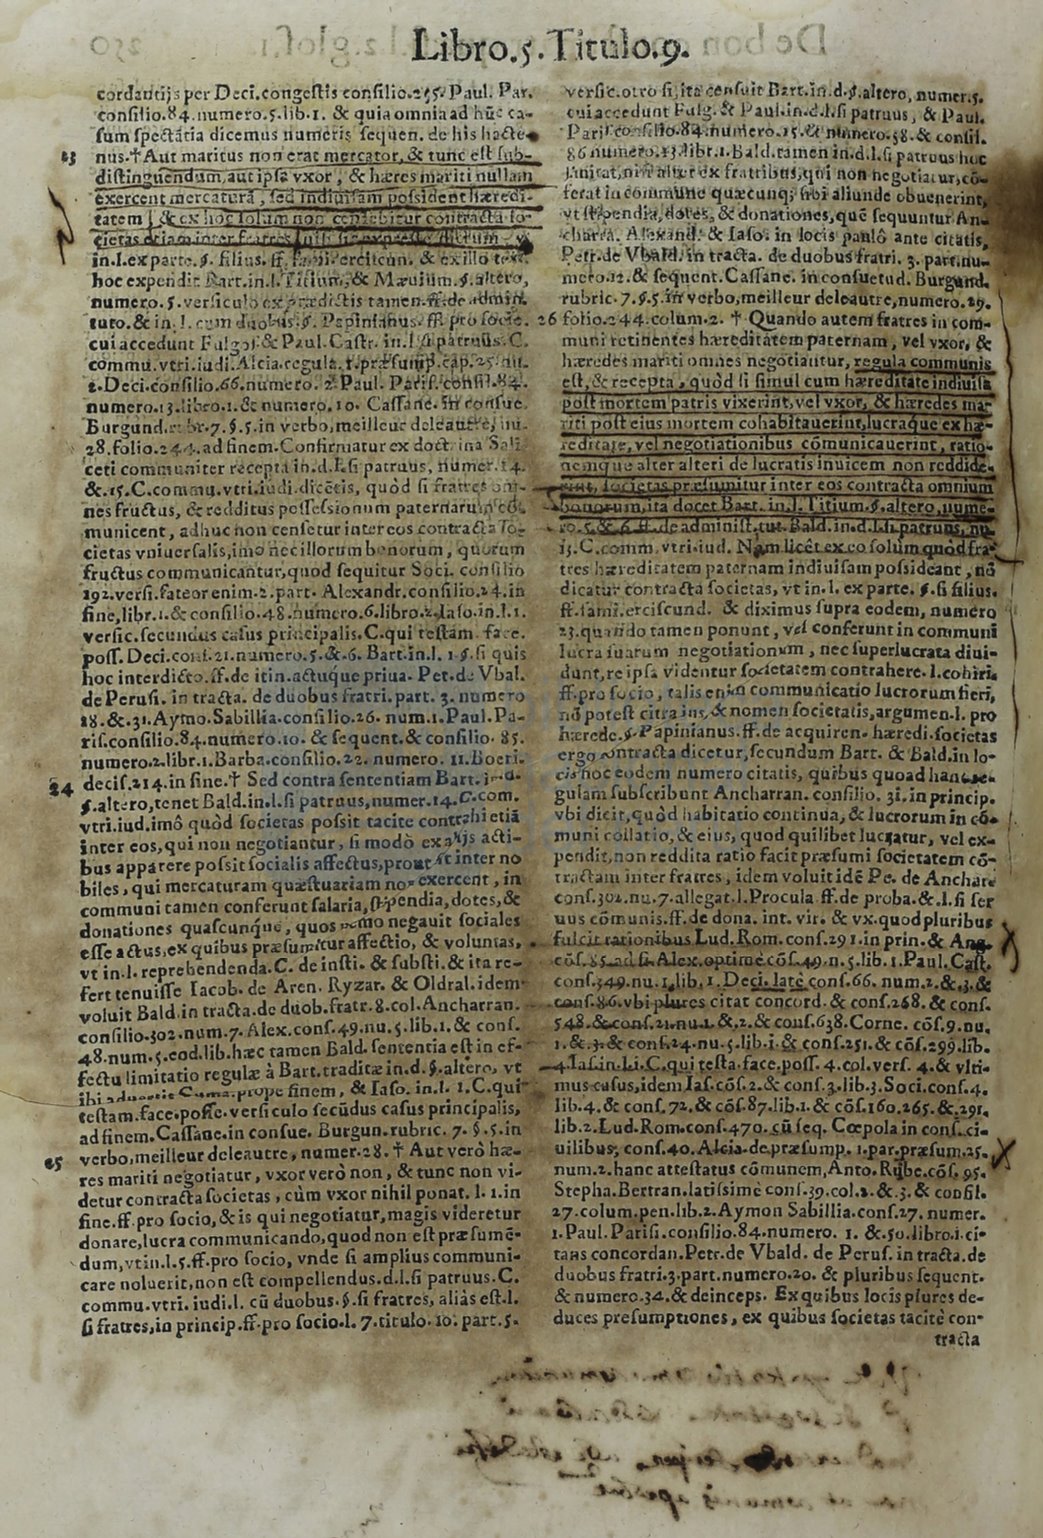 Libro.5.Titulo.9.
cordantijs per Deci.congestis consilio.255.Paul. Par.
consilio.84.numero.5.lib.1. & quia omnia ad hũc ca-
sum spectãtia dicemus numeris sequen. de his hacte-
23 nus.† Aut maritus non erat mercator, & tunc est sub-
distinguendum, aut ipsa vxor, & hæres mariti nullam
exercent mercaturã, sed indiuisam possident hæredi-
tatem, & ex hoc solum non censebitur contracta so-
cietas etiam inter fratres
in.l.ex parte.§. filius. ff. fami.erciscun. & ex illo tex.
hoc expendit Bart.in.l.Titium, & Mæuium.§.altero,
numero.5.versiculo ex prædictis tamen.ff.de admin.
tuto.& in.l. cum duobus.§. Papinianus.ff. pro socio.
cui accedunt Fulgos.& Paul.Castr. in.l.si patruus.C.
commu.vtri.iudi.Alcia.regula.1.præsump.cap.25.nu.
2.Deci.consilio.66.numero.2.Paul. Paris.consil.84.
numero.13.libro.1.& numero.10. Cassane. in consue.
Burgund.rubr.7.§.5.in verbo,meilleur deleautre, nu.
28.folio.244.ad finem.Confirmatur ex doctrina Sali
ceti communiter recepta in.d.l.si patruus, numer.14.
&.15.C.commu.vtri.iudi.dicẽtis, quòd si fratres om-
nes fructus, & redditus possessionum paternarum cõ-
municent, adhuc non censetur inter eos contracta so-
cietas vniuersalis,imo nec illorum bonorum, quorum
fructus communicantur,quod sequitur Soci. consilio
192.versi.fateor enim.2.part. Alexandr.consilio.24.in
fine,libr.1.& consilio.48.numero.6.libro.2.Iaso.in.l.1.
versic.secundus casus principalis.C.qui testam. face.
poss. Deci.cons.21.numero.5.&.6. Bart.in.l. 1.§.si quis
hoc interdicto.ff.de itin.actuque priua. Pet.de Vbal.
de Perusi. in tracta. de duobus fratri.part. 3. numero
28.&.31.Aymo.Sabillia.consilio.26. num.1.Paul.Pa-
ris.consilio.84.numero.10. & sequent.& consilio. 85.
numero.2.libr.1.Barba.consilio.22. numero. 11.Boeri.
24 decis.214.in fine.† Sed contra sententiam Bart. in.d.
§.altero,tenet Bald.in.l.si patruus,numer.14.C.com.
vtri.iud.imô quòd societas possit tacite contrahi etiã
inter eos,qui non negotiantur, si modò ex alijs acti-
bus apparere possit socialis affectus,prout si inter no
biles, qui mercaturam quæstuariam non exercent, in
communi tamen conferunt salaria, stipendia, dotes, &
donationes quascunq́ue, quos nemo negauit sociales
esse actus,ex quibus præsumitur affectio, & voluntas,
vt in.l. reprehendenda.C. de insti. & substi.& ita re-
fert tenuisse Iacob. de Aren. Ryzar. & Oldral.idem
voluit Bald.in tracta.de duob.fratr.8.col.Ancharran.
consilio.302.num.7. Alex.cons.49.nu.5.lib.1.& cons.
48.num.5.eod.lib.hæc tamen Bald. sententia est in ef-
fectu limitatio regulæ à Bart.traditæ in.d.§.altero, vt
ibi prope finem, & Iaso. in.l. 1.C.qui
testam.face.posse.versiculo secũdus casus principalis,
ad finem.Cassane.in consue. Burgun.rubric. 7. §.5.in
25 verbo,meilleur deleautre, numer.28.† Aut verò hæ-
res mariti negotiatur, vxor verò non, & tunc non vi-
detur contracta societas, cùm vxor nihil ponat. l. 1.in
fine.ff.pro socio,& is qui negotiatur,magis videretur
donare,lucra communicando,quod non est præsumẽ-
dum,vt in.l.5.ff.pro socio, vnde si amplius communi-
care noluerit,non est compellendus.d.l.si patruus.C.
commu.vtri. iudi.l. cũ duobus.§.si fratres, aliàs est.l.
si fratres,in princip.ff.pro socio.l. 7.titulo.10.part.5.
versic.otro si,ita censuit Bart.in.d.§.altero, numer.5.
cui accedunt Fulg. & Paul.in.d.l.si patruus, & Paul.
Paris.consilio.84.numero.15.& numero.58.& consil.
86.numero.13.libr.1.Bald.tamen in.d.l.si patruus hoc
limitat, nisi alter ex fratribus, qui non negotiatur, cõ-
ferat in commune quæcunq; sibi aliunde obuenerint,
vt stipendia, dotes, & donationes, quẽ sequuntur An-
charra. Alexand. & Iaso. in locis paulô ante citatis,
Petr.de Vbald.in tracta. de duobus fratri. 3. part.nu-
mero.12.& sequent.Cassane. in consuetud. Burgund.
rubric.7.§.5.in verbo,meilleur deleautre,numero.29.
26 folio.244.colum.2. † Quando autem fratres in com-
muni retinentes hæreditatem paternam, vel vxor, &
hæredes mariti omnes negotiantur, regula communis
est, & recepta, quòd si simul cum hæreditate indiuisa
post mortem patris vixerint, vel vxor, & hæredes ma-
riti post eius mortem cohabitauerint, lucraque ex hæ-
reditate, vel negotiationibus cõmunicauerint, ratio-
nemque alter alteri de lucratis inuicem non reddide-
rint, societas præsumitur inter eos contracta omnium
bonorum, ita docet Bart. in.l. Titium.§.altero, nume-
ro.5.& 6.ff.de administ.tut. Bald.in.d.l.si patruus, nu.
13.C.comm.vtri.iud. Nam licêt ex eo solum quòd fra-
tres hæreditatem paternam indiuisam possideant, nõ
dicatur contracta societas, vt in.l. ex parte. §.si filius.
ff.fami.erciscund. & diximus supra eodem, numero
23.quando tamen ponunt, vel conferunt in communi
lucra suarum negotiationum, nec superlucrata diui-
dunt,re ipsa videntur societatem contrahere.l.cohiri.
ff.pro socio, talis enim communicatio lucrorum fieri,
nõ potest citra ius, & nomen societatis,argumen.l. pro
hærede.§.Papinianus.ff.de acquiren.hæredi.societas
ergo contracta dicetur,secundum Bart. & Bald.in lo-
cis hoc eodem numero citatis, quibus quoad hanc re-
gulam subscribunt Ancharran. consilio. 31.in princip.
vbi dicit,quòd habitatio continua, & lucrorum in cõ-
muni collatio, & eius, quod quilibet lucratur, vel ex-
pendit,non reddita ratio facit præsumi societatem cõ-
tractam inter fratres, idem voluit idẽ Pe. de Anchara
cons.302.nu.7.allegat.l.Procula ff.de proba.&.l.si ser
uus cõmunis.ff.de dona. int. vir. & vx.quod pluribus
fulcit rationibus Lud. Rom. cons.291.in prin.& Ang.
cõs.85.ad fi. Alex.optimè.cõs.49.n.5.lib.1.Paul.Cast.
cons.349.nu.1.lib.1.Deci.latè cons.66. num.2.&.3.&
cons.86.vbi plures citat concord.& cons.268.& cons.
548.& cons.21.nu.1.&.2.& cons.638.Corne. cõs.9.nu.
1.&.3.& cons.24.nu.5.lib.1.& cons.251.& cõs.299.lib.
4.Ias.in.l.1.C.qui testa.face.poss. 4.col.vers. 4.& vlti-
mus casus,idem Ias.cõs.2.& cons.3.lib.3.Soci.cons.4.
lib.4.& cons.72.& cõs.87.lib.1.& cõs.160.265.&.291.
lib.2.Lud.Rom.cons.470. cũ seq. Cœpola in cons.ci-
uilibus, cons.40.Alcia.de præsump. 1.par.præsum.25.
num.2.hanc attestatus cõmunem,Anto.Rube.cõs.95.
Stepha.Bertran.latissimè cons.39.col.2.&.3.& consil.
27.colum.pen.lib.2.Aymon Sabillia.cons.27. numer.
1.Paul.Parisi.consilio.84.numero. 1. &.50.libro.1.ci-
tans concordan.Petr.de Vbald. de Perus. in tracta.de
duobus fratri.3.part.numero.20. & pluribus sequent.
& numero.34.& deinceps. Ex quibus locis plures de-
duces presumptiones, ex quibus societas tacitè con-
tracta